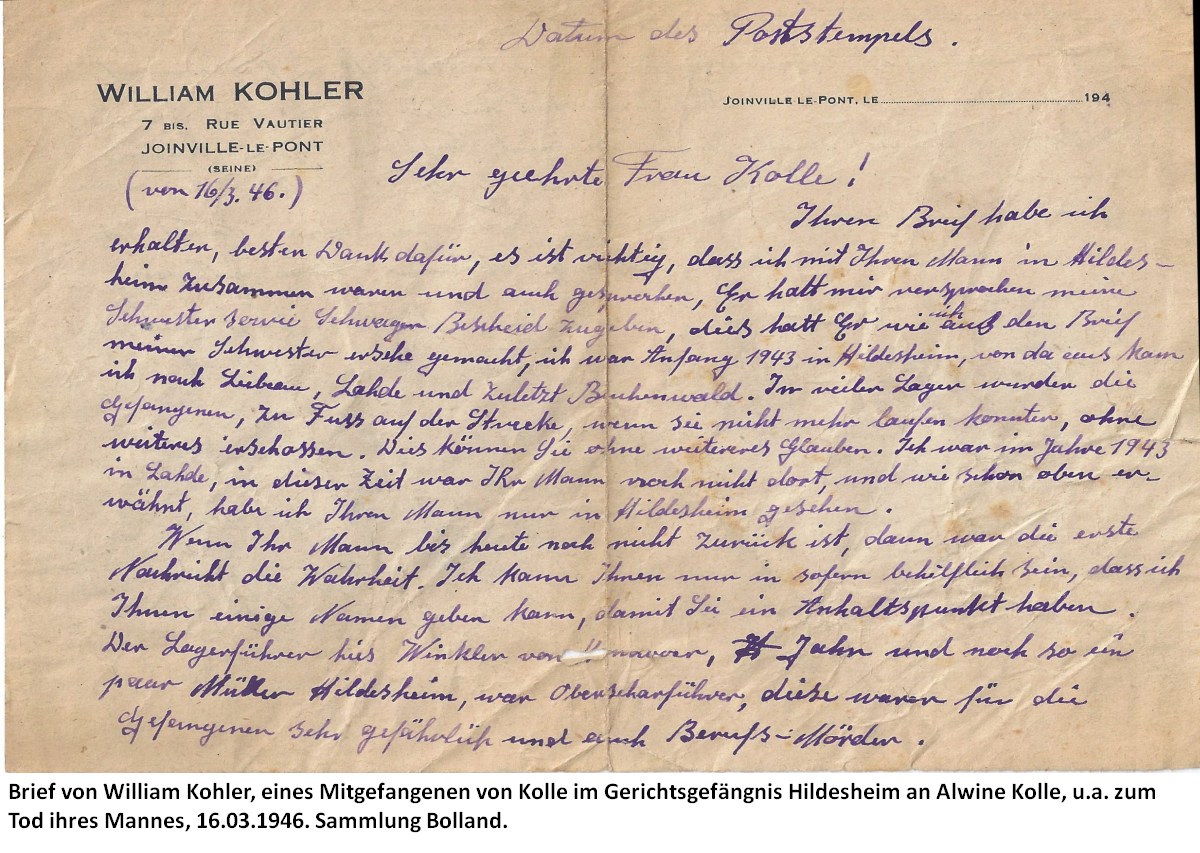 Datum des Poststempels.
WILLIAM KOHLER
7 BIS, RUE VAUTIER
JOINVILLE-LE-PONT
(SEINE)
JOINVILLE-LE-PONT, LE 194
(von 16/3. 46.)
Sehr geehrte Frau Kolle!
Ihren Brief habe ich
erhalten, besten Dank dafür, es ist richtig, dass ich mit Ihren Mann in Hildes-
heim zusammen waren und auch gesprochen, Er hatt mir versprochen meine
Schwester sowie Schwager Bescheid zugeben, dies hatt Er wie ich aus den Brief
meiner Schwester ersehe gemacht, ich war Anfang 1943 in Hildesheim, von da aus kam
ich nach Liebenau, Lahde und zuletzt Buchenwald. In vielen Lager wurden die
Gefangenen, zu Fuss auf der Strecke, wenn sie nicht mehr laufen konnten, ohne
weiteres erschossen. Dies können Sie ohne weiteres Glauben. Ich war im Jahre 1943
in Lahde, in dieser Zeit war Ihr Mann noch nicht dort, und wie schon oben er-
wähnt, habe ich Ihren Mann nur in Hildesheim gesehen.
Wenn Ihr Mann bis heute noch nicht zurück ist, dann war die erste
Nachricht die Wahrheit. Ich kann Ihnen nur in sofern behilflich sein, dass ich
Ihnen einige Namen geben kann, damit Sie ein Anhaltspunkt haben.
Der Lagerführer hies Winkler von Hannover, Jahn und noch so ein
paar Müller Hildesheim, war Oberscharführer, diese waren für die
Gefangenen sehr gefährlich und auch Berufs-Mörder.
Brief von William Kohler, eines Mitgefangenen von Kolle im Gerichtsgefängnis Hildesheim an Alwine Kolle, u.a. zum
Tod ihres Mannes, 16.03.1946. Sammlung Bolland.